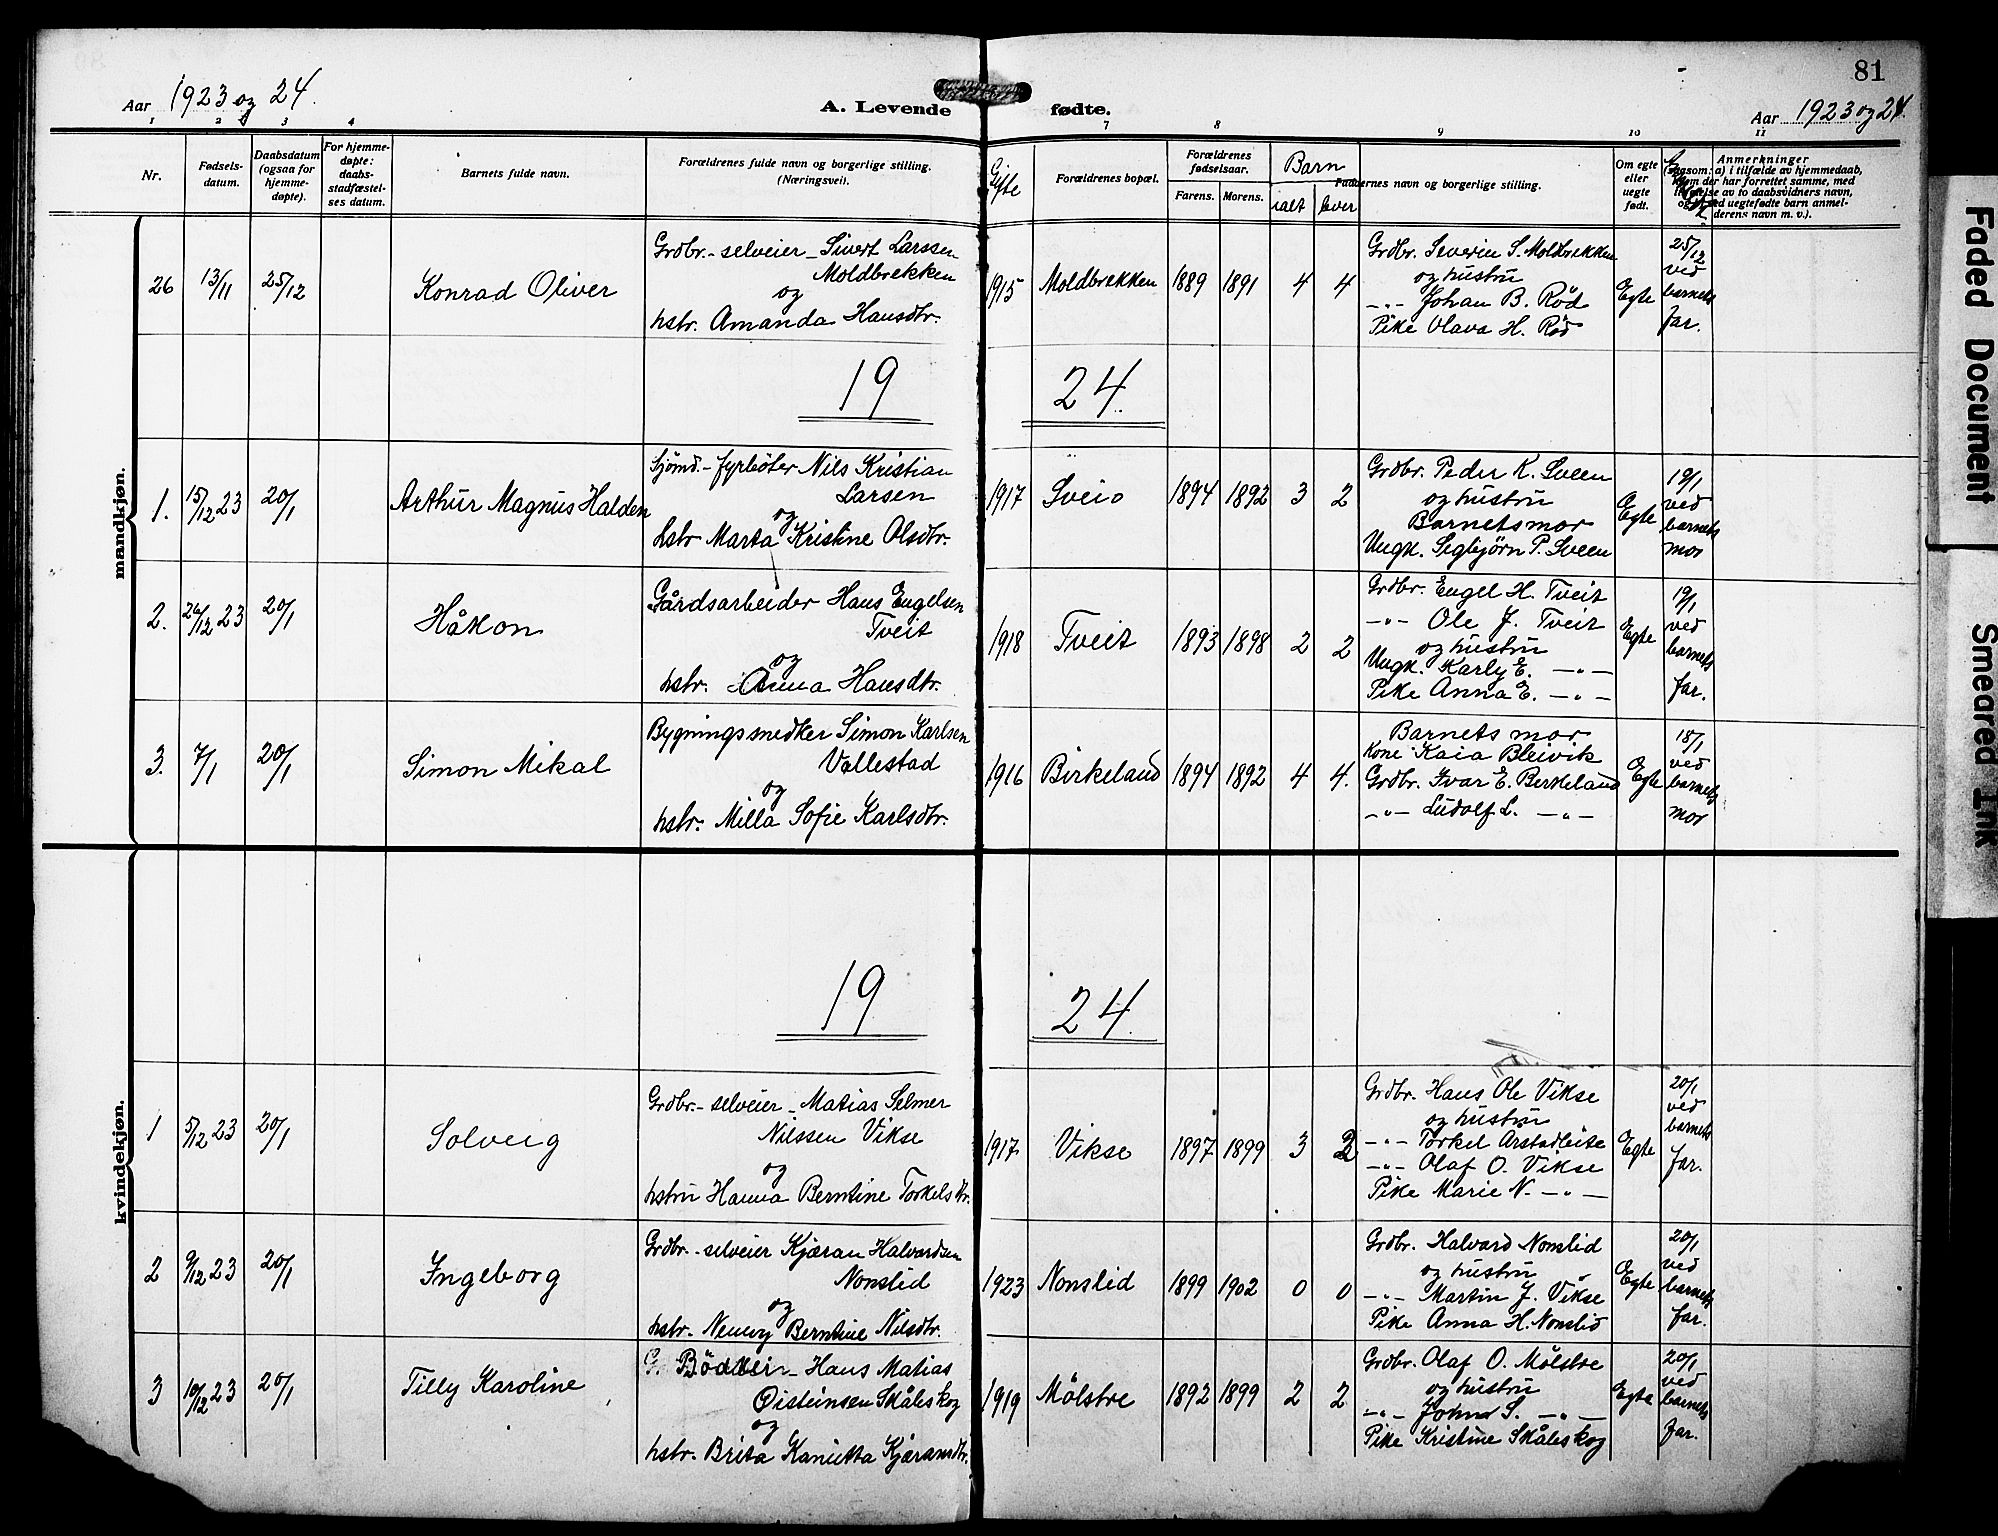 81
Aar 1923 og 24.
A. Levende fødte.
Aar 1923 og 24.
1 2 3 4 7 8 9 10 11
Nr.
Fødsels-
datum.
Daabsdatum
(ogsaa for
hjemme-
døpte).
For hjemme-
døpte:
daabs-
stadfæstel-
ses datum.
Barnets fulde navn.
Forældrenes fulde navn og borgerlige stilling.
(Næringsvei).
Gifte
Forældrenes bopæl.
Forældrenes
fødselsaar.
Farens. Morens.
Barn
ialt lever
Faddernes navn og borgerlige stilling.
Om egte
eller
uegte
født.
Anmerkninger
(saasom: a) i tilfælde av hjemmedaab,
hvem der har forrettet samme, med
av to daabsvidners navn,
ved uegtefødte barn anmel-
derens navn m. v.).
mandkjøn.
26 13/11 25/12
Konrad Oliver
Grdbr.- selveier - Sivert Larssen
Moldbrekken
og
hstr. Amanda Hansdtr.
1915 Moldbrekken 1889 1891 4 4
Grdbr. Severin S. Moldbrekken
og hustru
-"- Johan B. Röd
Pike Olava H. Röd
Egte
25/12
ved
barnets
far.
19 24.
1. 15/12 23 20/1
Arthur Magnus Halden
Sjömd.- fyrböter Nils Kristian
Larsen
og
hstr Marta Kristine Olsdtr.
1917 Sveio 1894 1892 3 2
Grdbr. Peder K. Sveen
og hustru
Barnets mor
Ungk. Segbjörn P. Sveen
Egte
19/1
ved
barnets
mor
2. 26/12 23 20/1
Håkon
Gårdsarbeider Hans Engelsen
Tveit
og
hstr. Anna Hansdtr.
1918 Tveit 1893 1898 2 2
Grdbr. Engel H. Tveit
-"- Ole J. Tveit
og hustru
Ungk. Karly E. -"-
Pike Anna E. -"-
Egte
19/1
ved
barnets
far.
3. 7/1 20/1
Simon Mikal
Bygningssnedker Simon Karlsen
Vallestad
og
hstr. Milla Sofie Karlsdtr.
1916 Birkeland 1894 1892 4 4.
Barnets mor
Kone Kaia Bleivik
Grdbr. Ivar E. Birkeland
-"- Ludolf L. -"-
Egte
18/1
ved
barnets
mor
kvindekjøn.
19 24.
1 5/12 23 20/1
Solveig
Grdbr.- selveier - Matias Selmer
Nilssen Vikse
og
hstru Hanna Berntine Torkelsdtr.
1917 Vikse 1897 1899 3 2
Grdbr. Hans Ole Vikse
og hustru
-"- Torkel Arstadleite
-"- Olaf O. Vikse
Pike Marie N. -"-
Egte
20/1
ved
barnets
far.
2 9/12 23 20/1
Ingeborg
Grdbr.- selveier Kjæran Halvardsen
Nonslid
og
hstr. Nenny Berntine Nilsdtr.
1923 Nonslid 1899 1902 0 0
Grdbr. Halvard Nonslid
og hustru
-"- Martin J. Vikse
Pike Anna H. Nonslid
Egte
20/1
ved
barnets
far.
3 10/12 23 20/1
Tilly Karoline
Bödker - Hans Matias
Öisteinsen Skåleskog
og
hstr. Brita Kanutta Kjæransdtr.
1919 Mölstre 1892 1899 2 2
Grdbr. Olaf O. Mölstre
og hustru
-"- John S. -"-
Pike Kristine Skåleskog
Egte
20/1
ved
barnets
far.
Faded Document
Smeared Ink